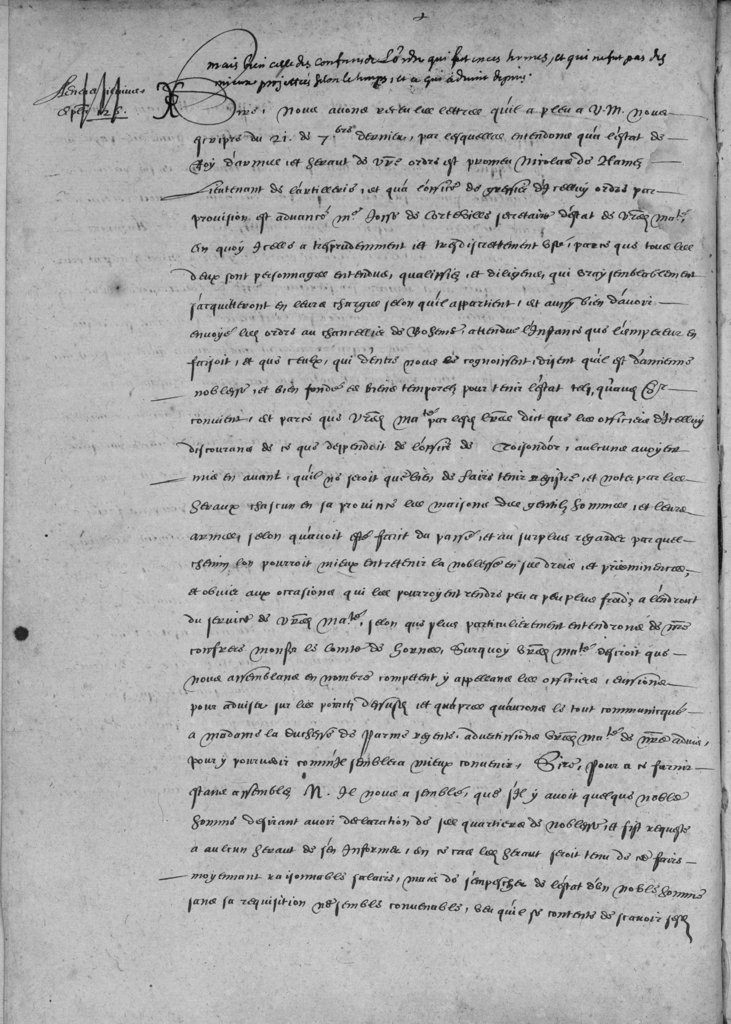 mais bien celle des confreres de l'ordre qui fut en ces termes, et qui ne fut pas des
mieux projettée selon le temps, et ce qui advint depuis.
Sire, Nous avons receu les lettres qu'il a pleu a V. M. nous
escripre du 21. de 7bre dernier, par lesquelles entendons qu'a l'estat de
Roy d'armes et heraut de vre ordre est promeu Nicolas de Hames
Lieutenant de l'artillerie, et qu'a l'office de greffier d'icelluy ordre par
provision est advancé Mre Josse de Corteville secretaire d'estat de vre Mate,
en quoy Icelle a tresprudemment et tresdiscrettement usé, parce que tous les
deux sont personnages entendus, qualifiez, et diligens, qui vraysemblablement
s'acquitteront en leurs charges selon qu'il appartient, et aussy bien d'avoir
envoyé les ordre au chancellier de Boheme, attendu l'instance que l'empereur en
faisoit, et que ceulx, qui d'entre nous le cognoissent, disent qu'il est d'ancienne
noblesse, et bien fondé es biens temporelz pour tenir l'estat tel, qu'a ung Chr
convient, Et parce que vre Mate par lesd. lres dict que les officiers d'icelluy
discourans de ce que dependoit de l'office de Toisond'or, aulcuns avoyent
mis en avant, qu'il ne seroit que bien de faire tenir registre, et noter par les
heraux chascun en sa province les maisons des gentilz hommes, et leurs
armes, selon qu'avoit esté faict du passé, et au surplus regarder par quel
chemin lon pourroit mieux entretenir la noblesse en ses drois, et preeminences,
et obvier aux occasions qui les pourroyent rendre peu a peu plus froidz a l'endroit
du service de vre Mate, selon que plus particulierement entendrons de nre
confrere Monsr le Comte de Hornes, Surquoy vre Mate desiroit que
nous assemblans en nombre competent y appellans les officiers, eussions
pour adviser sur les pointz dessusd. et qu'apres qu'aurons le tout communicqué
a Madame la Duchesse de Parme regente, advertissions vre Mate de nre advis,
pour y pourveoir comm'il semblera mieux convenir, Sire, Pour a ce furnir
estans assemblez N. Il nous a semblé, que s'il y avoit quelque noble
homme desirant avoir declaration de ses quartiers de noblesse, et fist requeste
a aulcun heraut de s'en informer, en ce cas led. heraut seroit tenu de ce faire
moyennant raisonnable salaire, mais de s'empescher de l'estat d'un noble homme
sans sa requisition ne semble convenable, veu qu'il se contente de scavoir sesd.